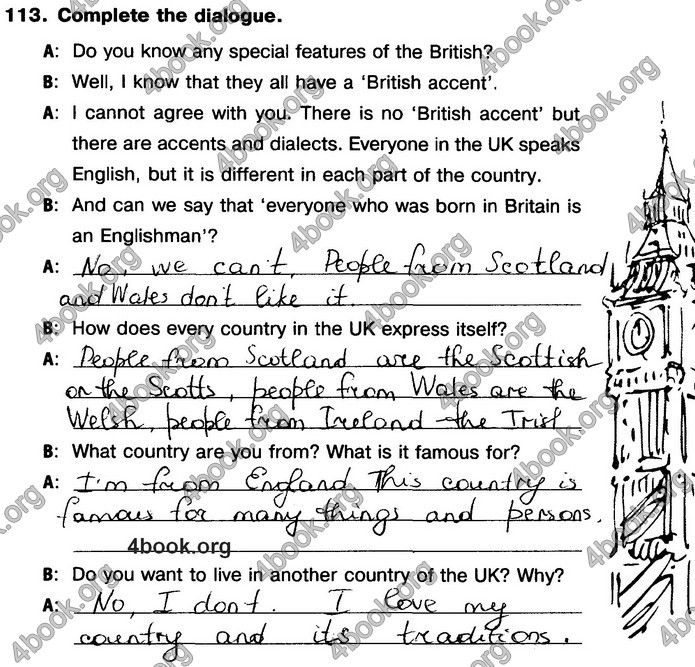 113. Complete the dialogue.
A: Do you know any special features of the British?
B: Well, I know that they all have a ‘British accent’.
A: I cannot agree with you. There is no ‘British accent’ but
there are accents and dialects. Everyone in the UK speaks
English, but it is different in each part of the country.
B: And can we say that ‘everyone who was born in Britain is
an Englishman’?
A: No, we can't. People from Scotland
and Wales don't like it.
B: How does every country in the UK express itself?
A: People from Scotland are the Scottish
or the Scotts, people from Wales are the
Welsh, people from Ireland the Irish
B: What country are you from? What is it famous for?
A: I'm from England This country is
famous for many things and persons.
4book.org
B: Do you want to live in another country of the UK? Why?
A: No, I dont. I love my
country and its traditions.